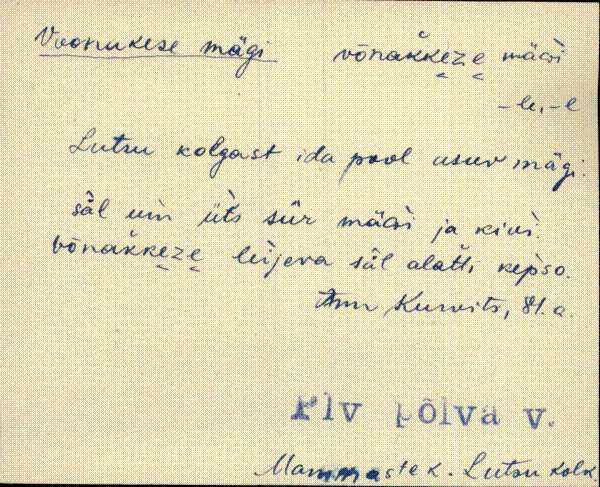 Voonukese mägi võnàkkeze mäGi
-le, -l
Lutsu kolgast ida pool asuv mägi.
säl um üt's sûr mäGi ja kivi.
võnàkkeze leijeva säl alatti kepso.
Ann Kurvits, 81. a.
Plv põlva v.
Mammaste k. Lutsu kolk